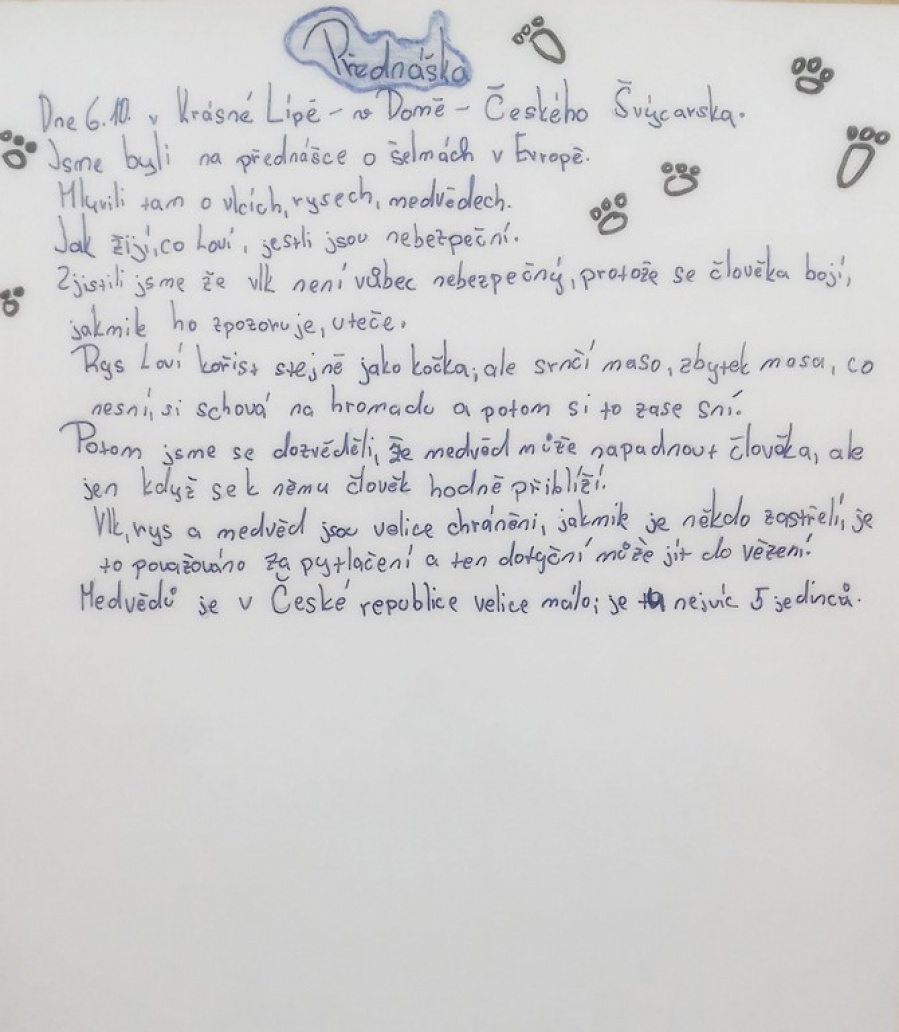 Přednáška
Dne 6.10. v Krásné Lípě - v Domě - Českého Švýcarska.
Jsme byli na přednášce o šelmách v Evropě.
Mluvili tam o vlcích, rysech, medvědech.
Jak žijí, co loví, jestli jsou nebezpeční.
Zjistili jsme že vlk není vůbec nebezpečný, protože se člověka bojí,
jakmile ho zpozoruje, uteče.
Rys loví kořist stejně jako kočka, ale srnčí maso, zbytek masa, co
nesní, si schová na hromadu a potom si to zase sní.
Potom jsme se dozvěděli, že medvěd může napadnout člověka, ale
jen když se k němu člověk hodně přiblíží.
Vlk, rys a medvěd jsou velice chráněni, jakmile je někdo zastřelí, je
to považováno za pytlačení a ten dotyční může jít do vězení.
Medvědů je v České republice velice málo, je nejvíc 5 jedinců.